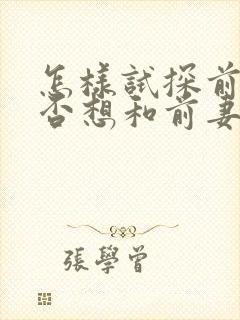 怎樣試探前
否想和前妻
張學曾